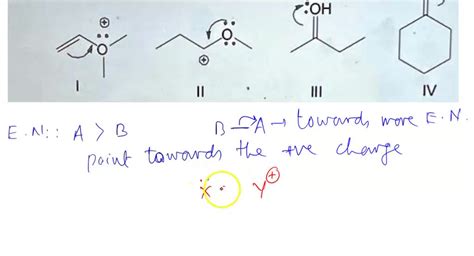 ⊕
:OH
O
O
⊕
I II III IV
E.N:: A > B B A → towards more E.N.
point towards the +ve charge
X Y⊕